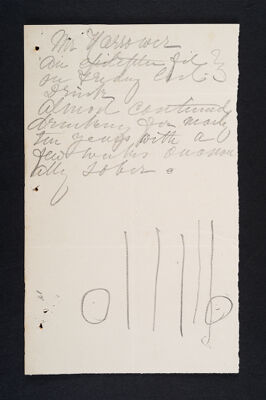 Mr Harrower
an epileptic fit
on Friday last
Drink
almost continued
drinking for many
years with a
few weeks occasion
ally sober